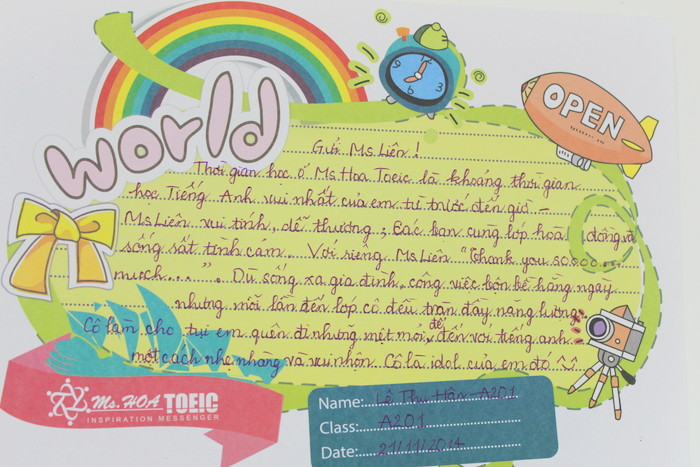 world
OPEN
Gửi Ms Liên !
Thời gian học ở Ms Hoa Toeic là khoảng thời gian
học Tiếng Anh vui nhất của em từ trước đến giờ -
Ms Liên vui tính, dễ thương ; Các bạn cùng lớp hoà đồng và
sống sắt tình cảm. Với riêng Ms Liên "Thank you sosoo...
much...". Dù sống xa gia đình, công việc bộn bề hằng ngay
nhưng mỗi lần đến lớp cô đều tràn đầy năng lượng
Cô làm cho tụi em quên đi những mệt mỏi, để đến với tiếng anh
một cách nhẹ nhàng và vui nhộn. Cô là idol của em đó ^.^
Ms. HOA TOEIC
INSPIRATION MESSENGER
Name: Lê Thu Hân - A201
Class: A201
Date: 21/11/2014